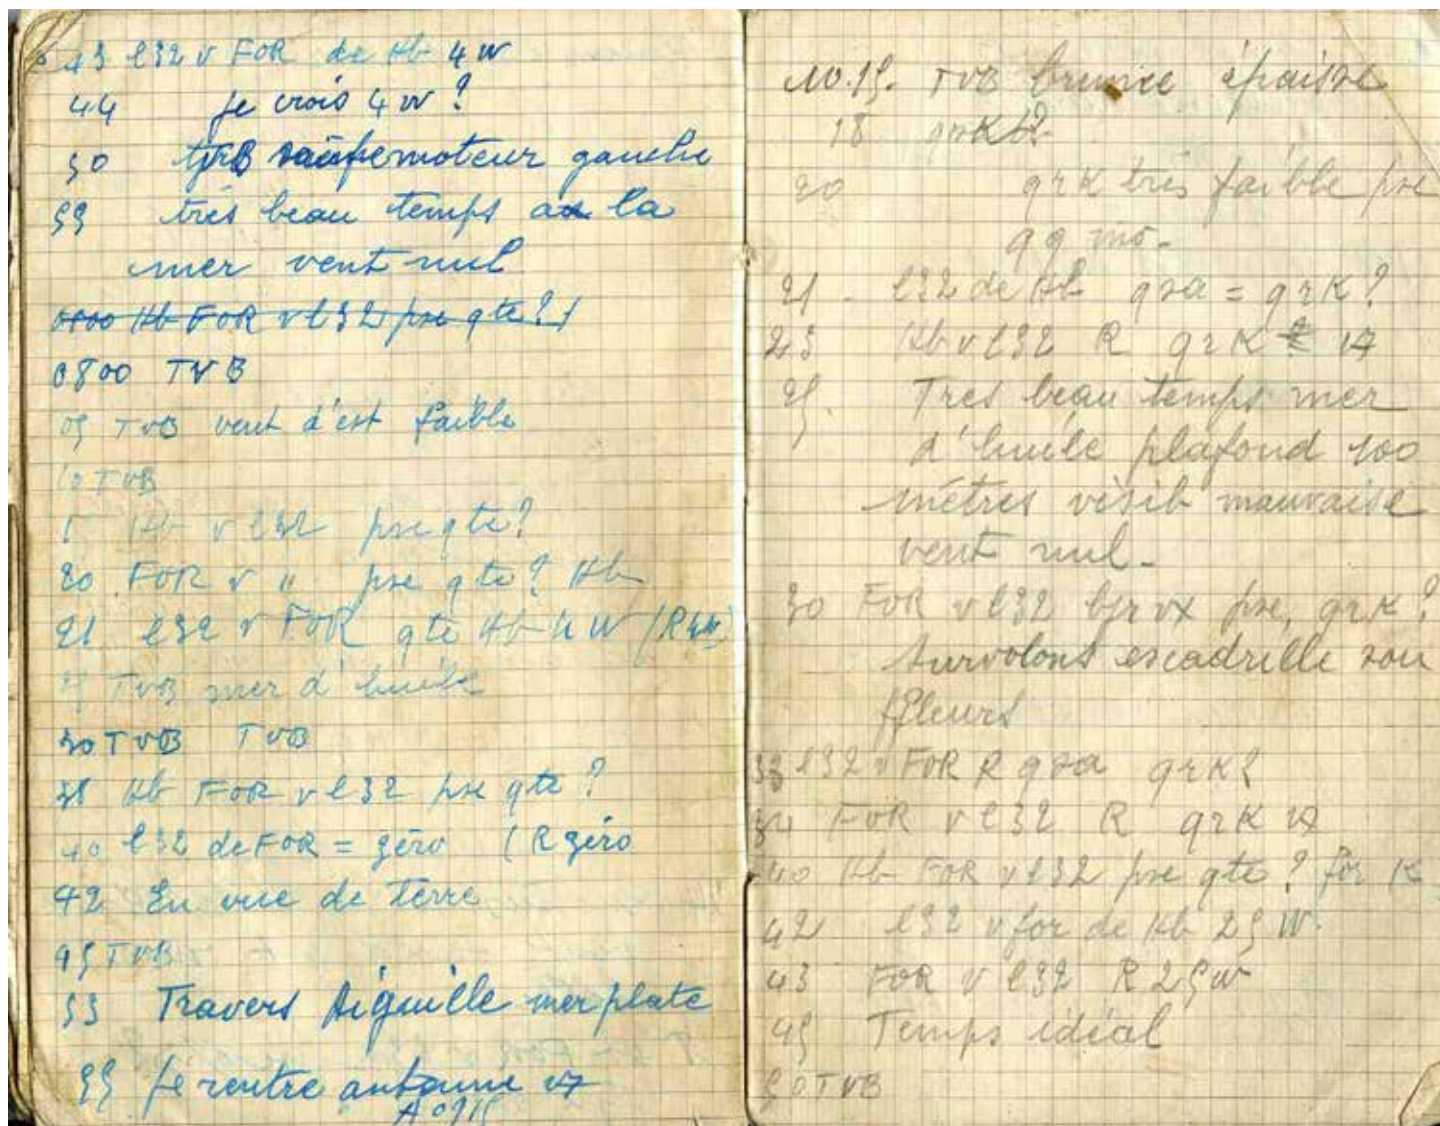 43 l32 v FOR de Hb 4 W
44 je crois 4 W ?
50 TVB moteur gauche
55 très beau temps la
mer vent nul
0800 Hb FOR v l32 pse qte ?
0800 TVB
05 TVB vent d'est faible
10 TVB
Hb v l32 pse qte ?
20 FOR v " pse qte ? Hb
21 l32 v FOR qte Hb W (R
25 TVB mer d'huile
30 TVB TVB
Hb FOR v l32 pse qte ?
40 l32 de FOR = zéro (R zéro
42 En vue de terre
45 TVB
53 Travers Aiguille mer plate
55 Je rentre antenne
A 0915
10.15. TVB brume épaisse
18 qrk
20 qrK très faible pse
qq mo-
21 - l32 de Hb qsa = qrK ?
23 Hb v l32 R qrK
25. Tres beau temps mer
d'huile plafond 100
mètres visib mauvaise
vent nul-
30 FOR v l32 pse, qrK ?
survolons escadrille
fleurs
33 l32 v FOR R qsa qrK ?
FOR v l32 R qrK
40 Hb FOR v l32 pse qte ? for K
42 l32 v for de Hb 25 W.
43 FOR v l32 R 25 W
45 Temps idéal
50 TVB